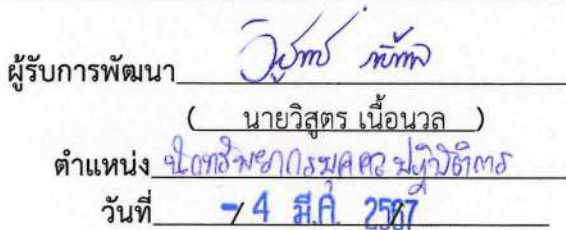 ผู้รับการพัฒนา
( นายวิสูตร เนื้อนวล )
ตำแหน่ง นักทรัพยากรบุคคลปฏิบัติการ
วันที่ - 4 มี.ค. 2567